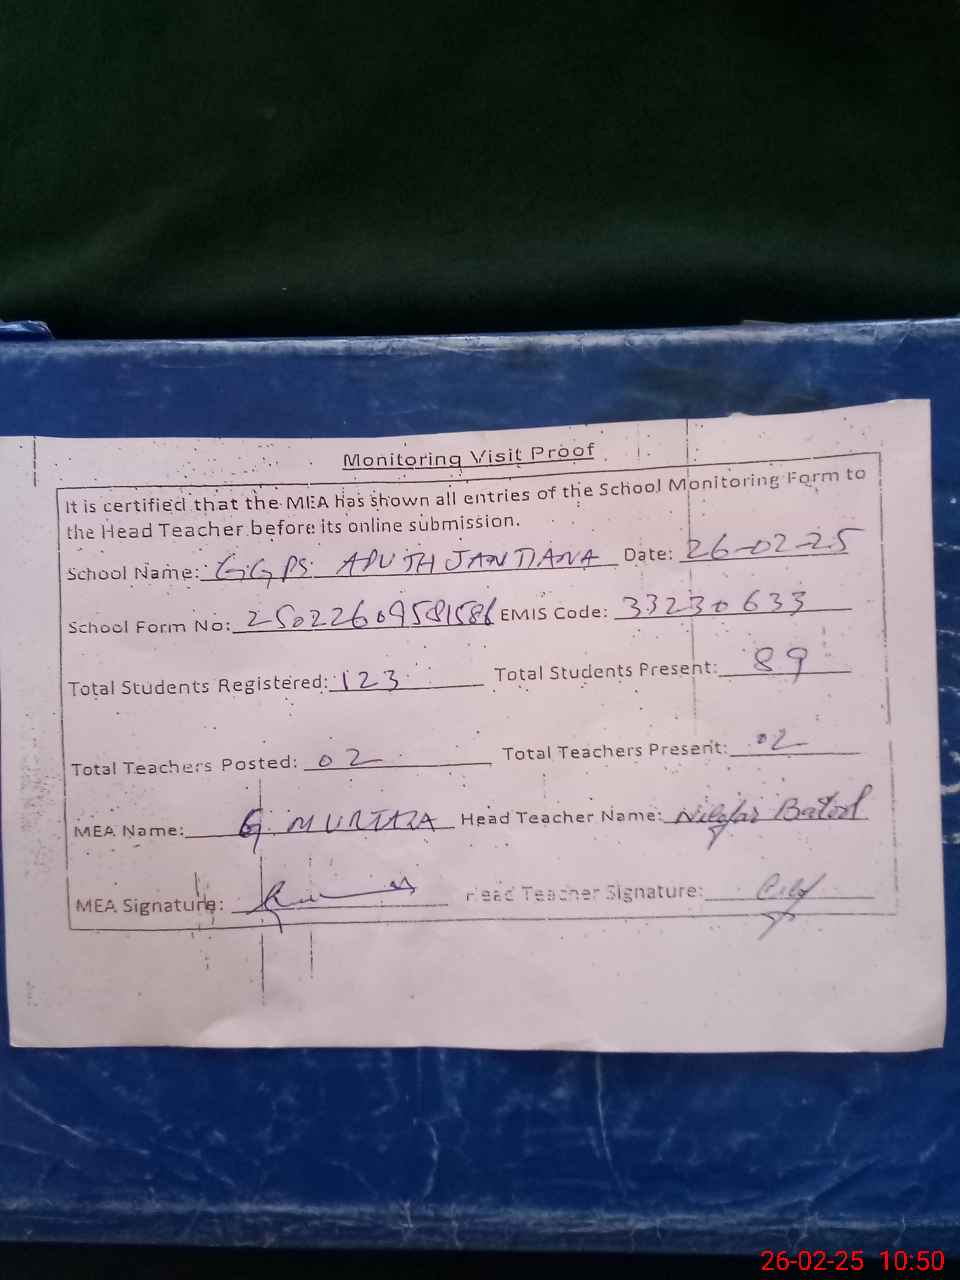 Monitoring Visit Proof
It is certified that the MEA has shown all entries of the School Monitoring Form to
the Head Teacher before its online submission.
School Name: GGPS JANDIANA Date: 26-02-25
School Form No: EMIS Code: 33230633
Total Students Registered: 123 Total Students Present: 89
Total Teachers Posted: 02 Total Teachers Present: 02
MEA Name: G. MURTAZA Head Teacher Name: Nilofar Batool
MEA Signature: Head Teacher Signature:
26-02-25 10:50